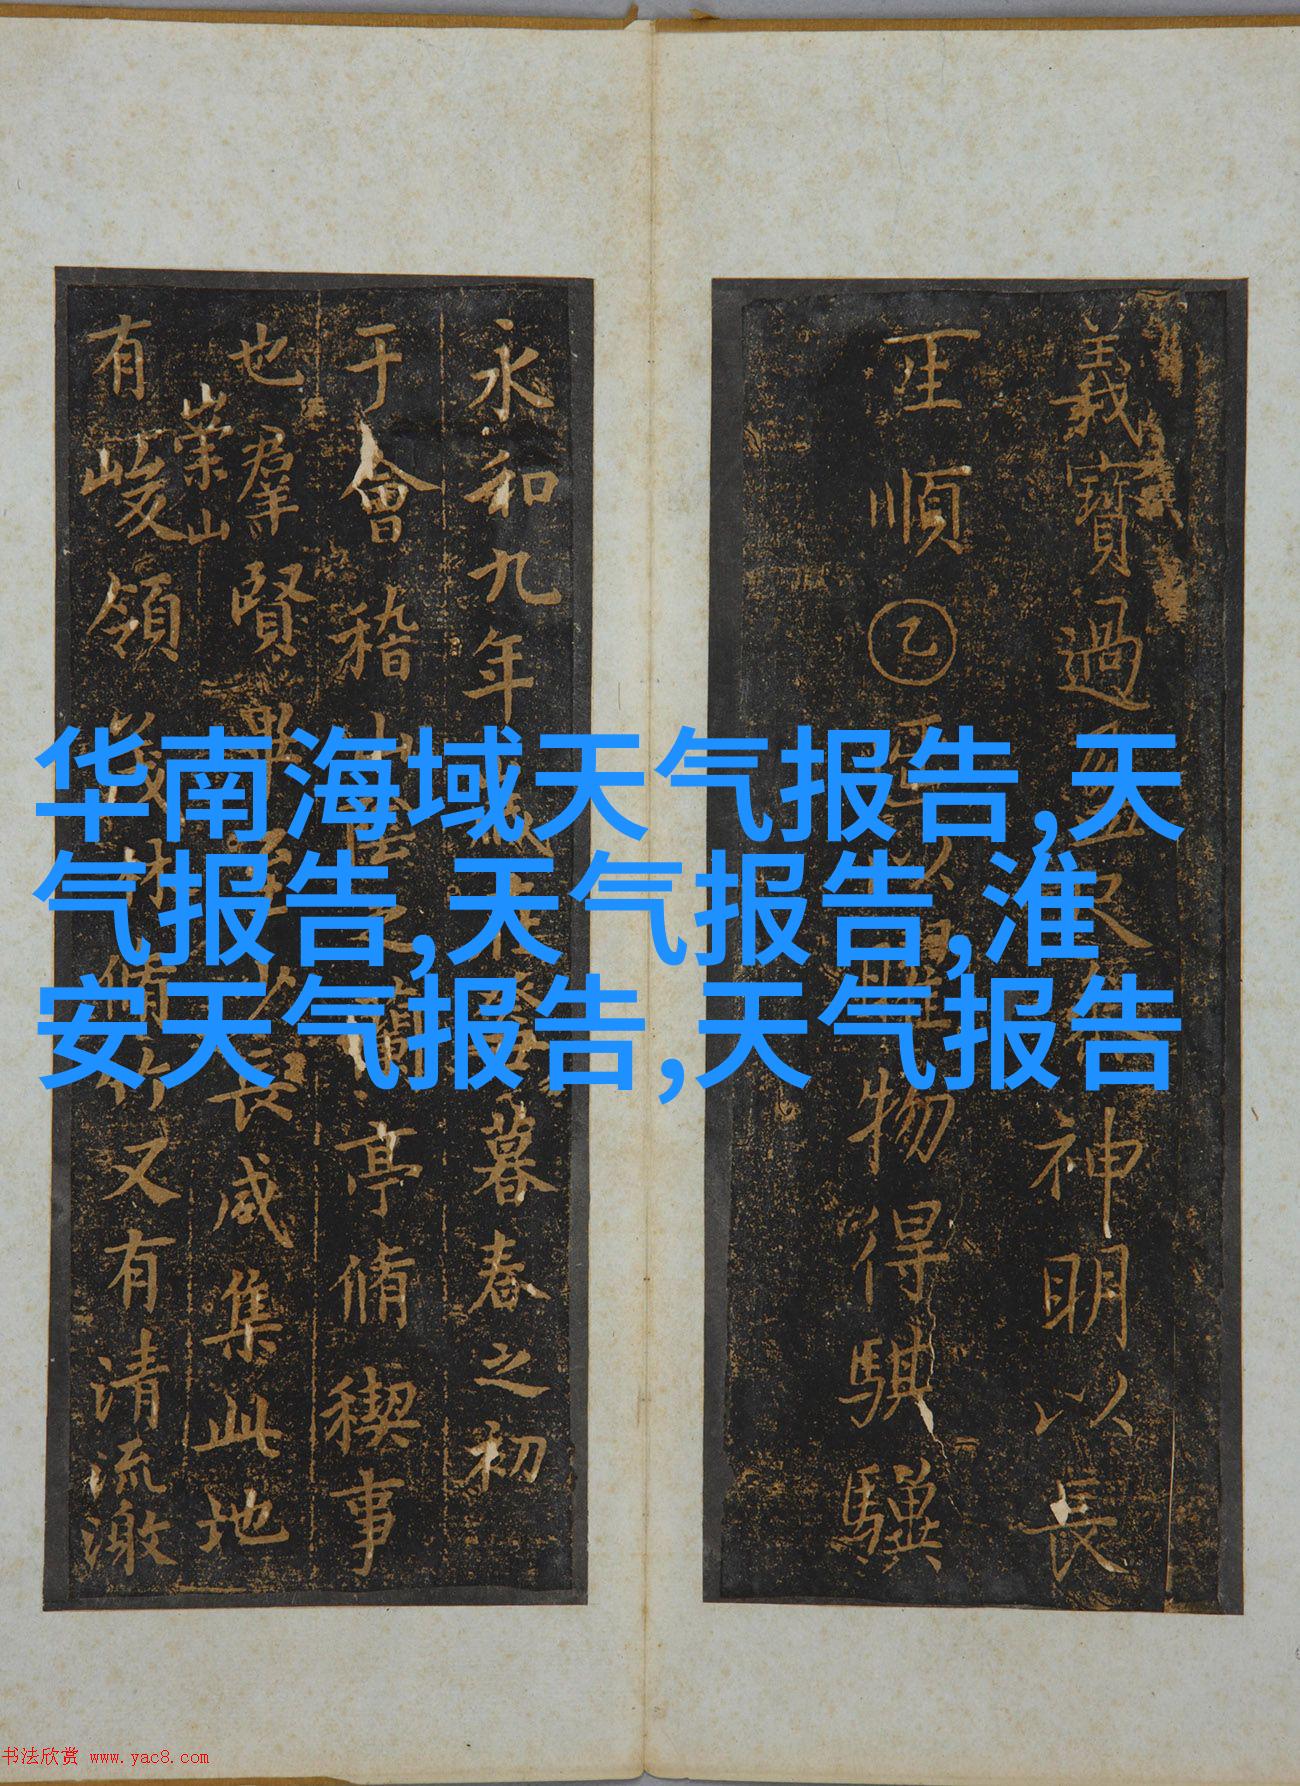 華南海域天气报告,天
气报告,天气报告,淮
安天气报告,天气报告
義寶過神明以長
順乙物得騏驥
永和九年歲在暮春之初
于會稽山陰之蘭亭脩稧事
也羣賢畢至少長咸集此地
崇山
有峻領茂林脩竹又有清流激
书法欣赏 www.yac8.com